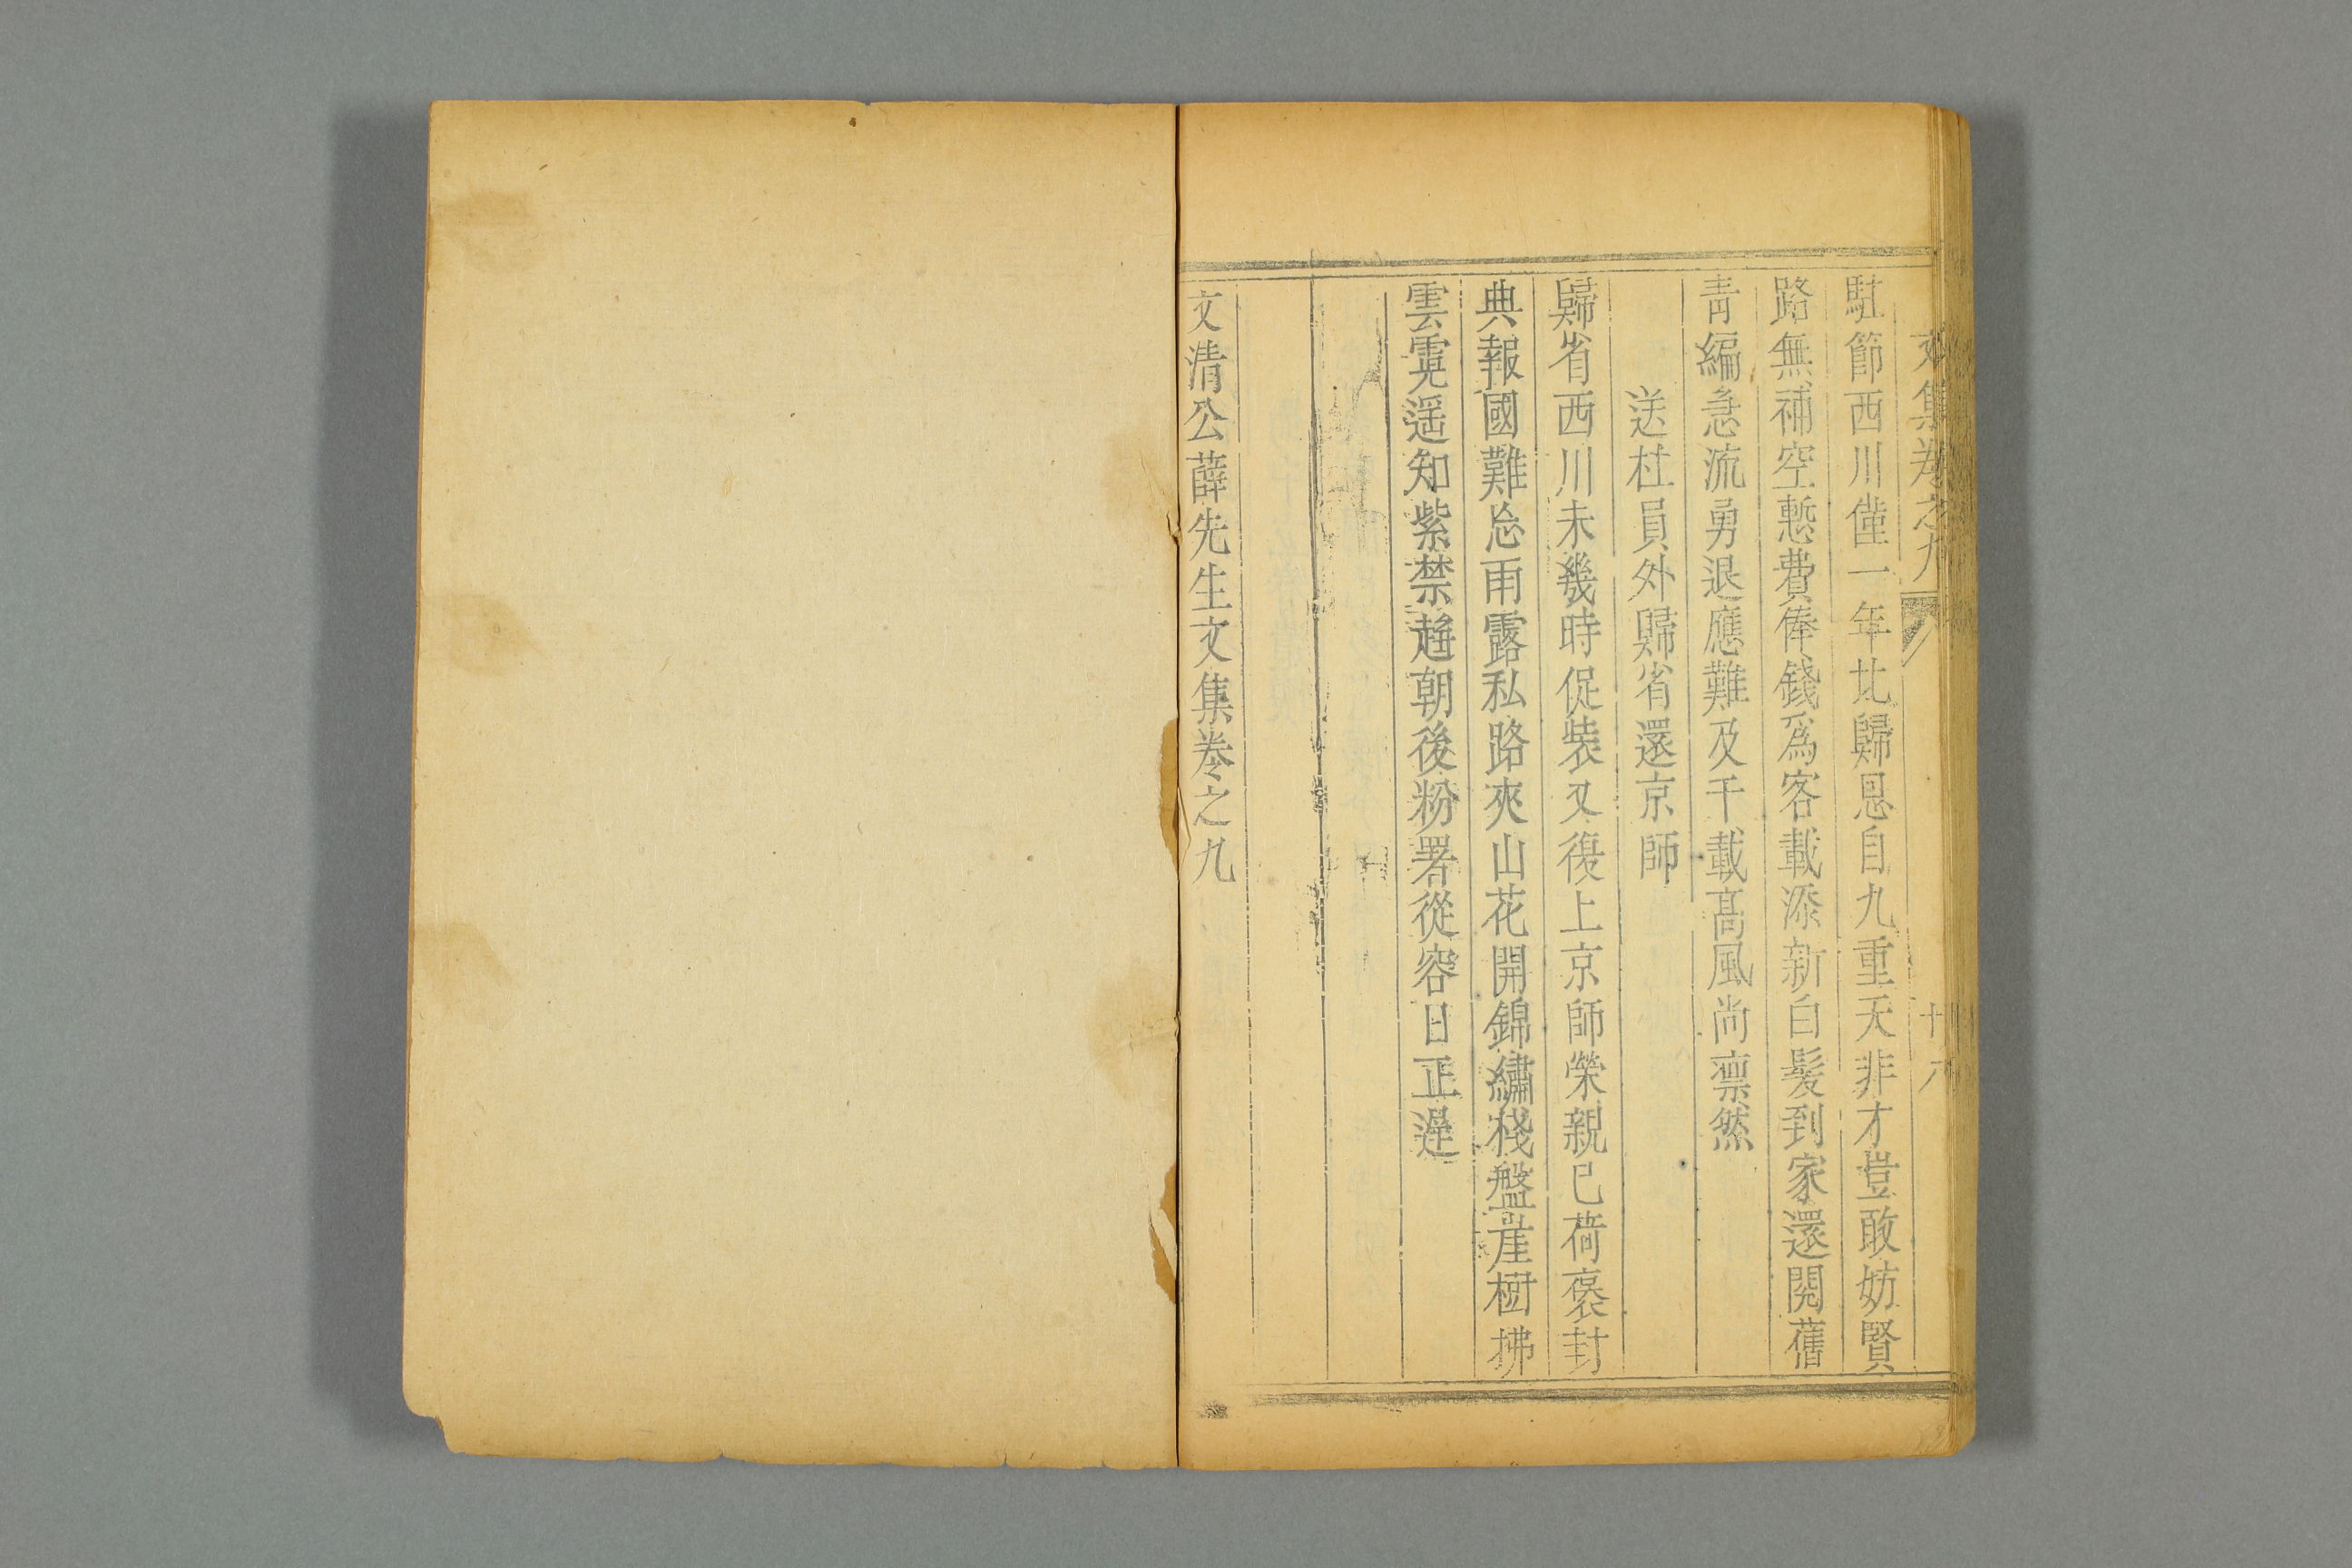 文集卷之九
駐節西川僅一年北歸恩自九重天非才豈敢妨賢
路無補空慙費俸錢爲客載添新白髮到家還閱舊
青編急流勇退應難及千載髙風尚凛然
送杜員外歸省還京師
歸省西川未幾時促装又復上京師榮親已荷褒封
典報國難忘雨露私路夾山花開錦繡棧盤崖樹拂
雲霓遥知紫禁趨朝後粉署從容日正遲
文清公薛先生文集卷之九